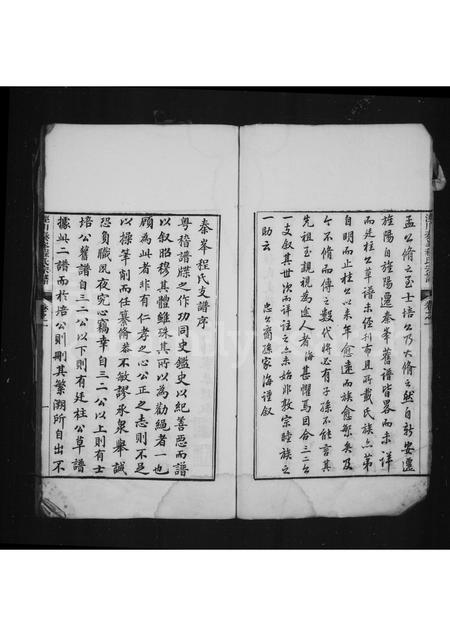 孟公脩之玉士培公乃大脩之然自新安遷
旌陽自旌陽遷秦峯舊譜皆畧而未詳
而廷柱公草譜未侄刊布且將戴氏族亦第
自明而止柱公以来年愈遠而族愈繁矣及
今不脩而傳之數代將必有子孫不能言其
先祖至親視為途人者海甚懼焉因合三二公
一支叙其世次而詳註之亦未始非敦宗睦族之
一助云
忠公裔孫家海謹叙
秦峯程氏支譜序
粤稽譜牒之作功同史鑑史以紀善惡而譜
以叙昭穆其體雖殊其所以為勸縄者一也
顧為此者非有仁孝之心公正之志則不足
以操筆削而任纂脩恭不敏謬承衆舉誠
恐負職夙夜究心竊幸自三二公以上則有士
培公舊譜自三二公以下則有廷柱公草譜
據此二譜而於培公則刪其繁溯所自出不